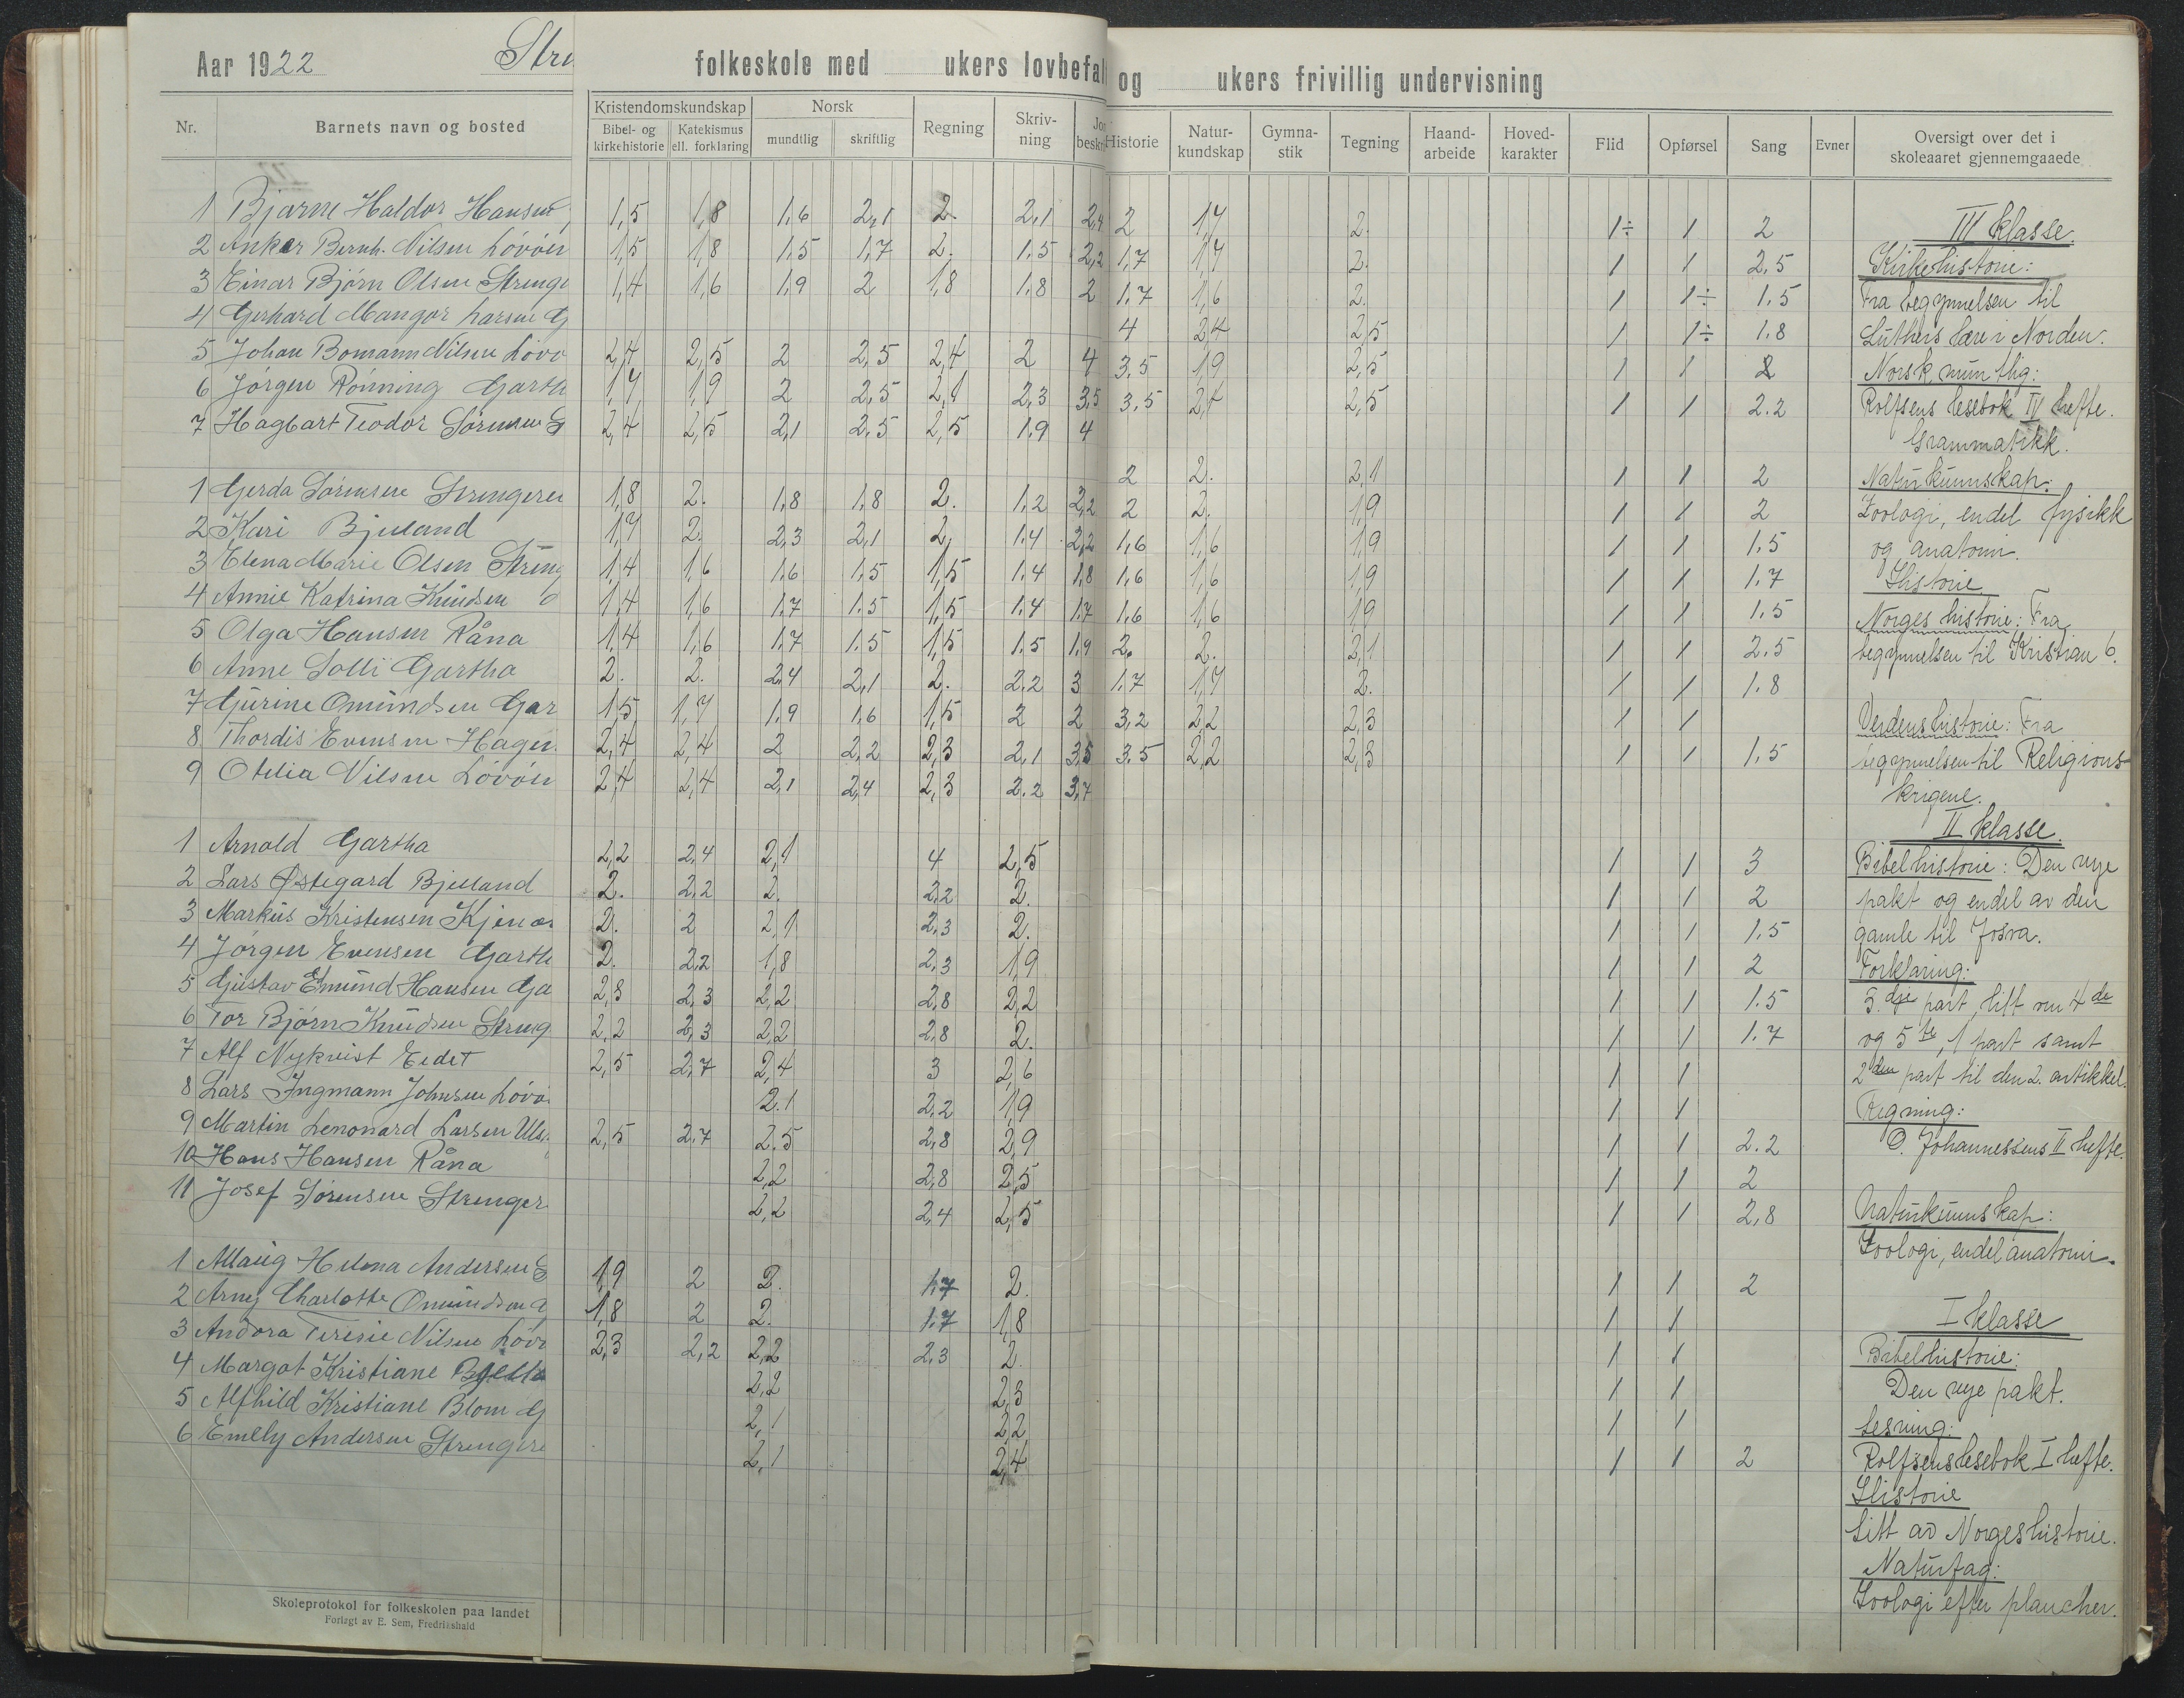 Aar 1922 Stre folkeskole med ukers lovbefal og ukers frivillig undervisning
Nr. Barnets navn og bosted Kristendomskundskap Bibel- og kirkehistorie Katekismus ell. forklaring Norsk mundtlig skriftlig Regning Skriv-ning Jor beskri Historie Natur-kundskap Gymna-stik Tegning Haand-arbeide Hoved-karakter Flid Opførsel Sang Evner Oversigt over det i skoleaaret gjennemgaaede
1 Bjarne Haldor Hansen 1,5 1,8 1,6 2,1 2. 2,1 2,4 2 1,7 2. 1÷ 1 2
2 Anker Bernh. Nilsen Lövöen 1,5 1,8 1.5 1,7 2. 1.5 2,2 1,7 1,7 2. 1 1 2,5
3 Einar Bjørn Olsen Strenge 1,4 1,6 1,9 2 1,8 1.8 2 1.7 1,6 2. 1 1÷ 1.5
4 Gerhard Mangor Larsen G 4 2,4 2,5 1 1÷ 1.8
5 Johan Bomann Nilsen Lövö 2,4 2,5 2 2,5 2,4 2 4 3,5 1,9 2,5 1 1 2
6 Jörgen Rönning Gartha 1,7 1,9 2 2,5 2,1 2,3 3,5 3,5 2,4 2,5 1 1 2.2
7 Hagbart Teodor Sörensen S 2,4 2,5 2,1 2.5 2,5 1.9 4
1 Gerda Sörensen Strengerei 1,8 2. 1,8 1,8 2. 1,2 2,2 2 2. 2,1 1 1 2
2 Kari Bjelland 1,7 2. 2,3 2,1 2, 1.4 2,2 2 2. 1,9 1 1 2
3 Elena Marie Olsen Streng 1,4 1,6 1,6 1,5 1,5 1.4 1,8 1,6 1,6 1,9 1 1 1.5
4 Annie Katrina Knudsen 1,4 1,6 1.7 1.5 1,5 1.4 1.7 1,6 1,6 1,9 1 1 1.7
5 Olga Hansen Råna 1,4 1,6 1.7 1.5 1,5 1.5 1.9 1,6 1,6 1,9 1 1 1.5
6 Anne Solli Gartha 2. 2. 2.4 2,1 2. 2.2 3 2. 2. 2,1 1 1 2.5
7 Gurine Omundsen Gar 1,5 1,7 1.9 1,6 1,5 2 2 1.7 1,7 2. 1 1 1.8
8 Thordis Evensen Hagen 2,4 2,4 2 2,2 2,3 2,1 3,5 3,2 2,2 2,3 1 1
9 Otelia Nilsen Lövöen 2,4 2,4 2,1 2,4 2,3 2.2 3,7 3.5 2,2 2,3 1 1 1,5
1 Arnold Gartha 2,2 2,4 2,1 4 2,5 1 1 3
2 Lars Østegard Bjelland 2. 2,2 2. 2,2 2. 1 1 2
3 Markus Kristensen Kjenæs 2. 2 2,1 2,3 2. 1 1 1.5
4 Jörgen Evensen Garth 2. 2,2 1,8 2,3 1,9 1 1 2
5 Gustav Emund Hansen Ga 2,3 2,3 2,2 2,8 2,2 1 1 1.5
6 Tor Bjørn Knudsen Streng 2,2 2,3 2,2 2,8 2. 1 1 1.7
7 Alf Nykvist Eidet 2,5 2,7 2,4 3 2,6 1 1
8 Lars Ingmann Johnsen Lövö 2.1 2,2 1,9 1 1
9 Martin Lenonard Larsen Uls 2,5 2,7 2.5 2,8 2,9 1 1 2.2
10 Hans Hansen Råna 2,2 2,8 2,5 1 1 2
11 Josef Sörensen Strenger 2,2 2,4 2,5 1 1 2,8
1 Aslaug Helena Andersen S 1,9 2 2. 1,7 2. 1 1 2
2 Arny Charlotte Omundsen G 1,8 2 2. 1.7 1,8 1 1
3 Andora Teresie Nilsen Lövö 2,3 2,2 2,2 2,3 2. 1 1
4 Margot Kristiane Bjella 2,2 2,3 1 1
5 Alfhild Kristiane Blom G 2,1 2,2 1 1
6 Emely Andersen Strengere 2,1 2,4 1 1 2
III klasse.
Kirkehistorie:
Fra begynnelsen til
Luthers lære i Norden.
Norsk, muntlig:
Rolfsens lesebok IV hefte.
Grammatikk.
Naturkunnskap:
Zoologi, endel fysikk
og anatomi.
Historie
Norges historie: Fra
begynnelsen til Kristian 6.
Verdenshistorie: Fra
begynnelsen til Religions-
krigene.
II klasse.
Bibelhistorie: Den nye
pakt og endel av den
gamle til Josva.
Forklaring:
3.dje part, litt om 4de
og 5te, 1 part samt
2den part til den 2. artikkel.
Regning:
O. Johannessens II hefte.
Naturkunnskap:
Zoologi, endel anatomi.
I klasse
Bibelhistorie:
Den nye pakt.
Lesning:
Rolfsens lesebok I hefte.
Historie
Litt av Norgeshistorie.
Naturfag:
Zoologi efter plancher.
Skoleprotokol for folkeskolen paa landet
Forlagt av E. Sem, Fredrikshald